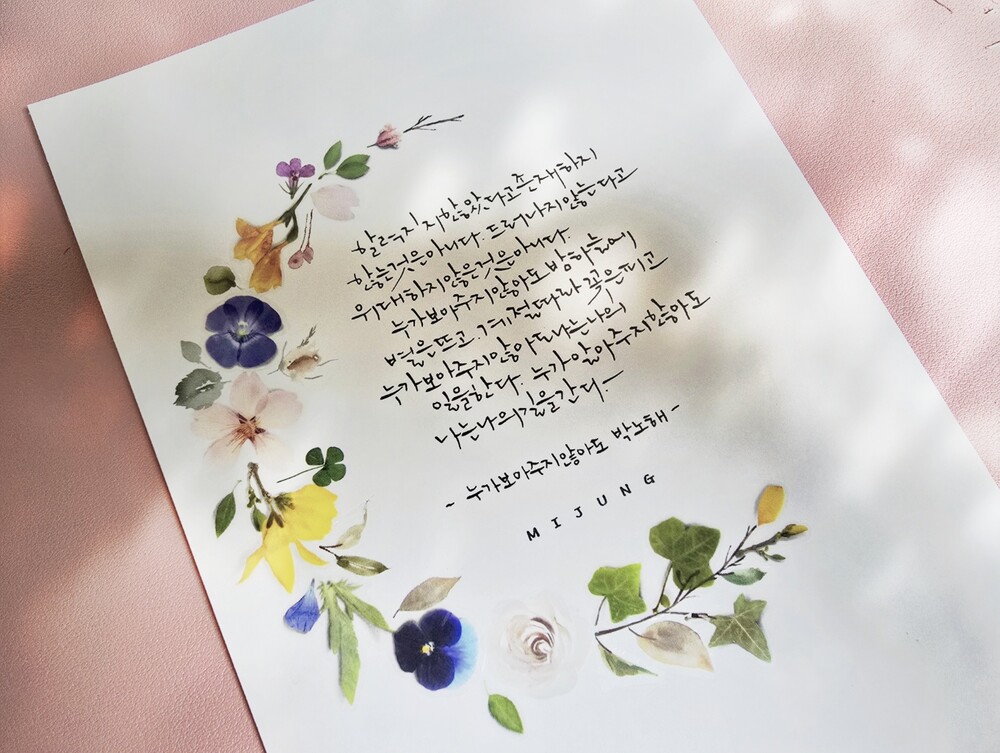 알려지지 않았다고 존재하지
않는것은 아니다. 드러나지 않는다고
위대하지 않은 것은 아니다.
누가 보아주지 않아도 밤하늘에
별은 뜨고, 계절따라 꽃은 피고
누가 보아주지 않아도 나는 나의
일을 한다. 누가 알아주지 않아도
나는 나의 길을 간다.
- 누가 보아주지 않아도 박노해 -
MIJUNG